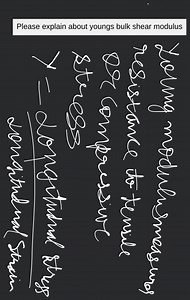 Please explain about youngs bulk shear modulus
Young modulus measures
resistance to tensile
or compressive
stress
Y = Longitudinal stress
Longitudinal strain